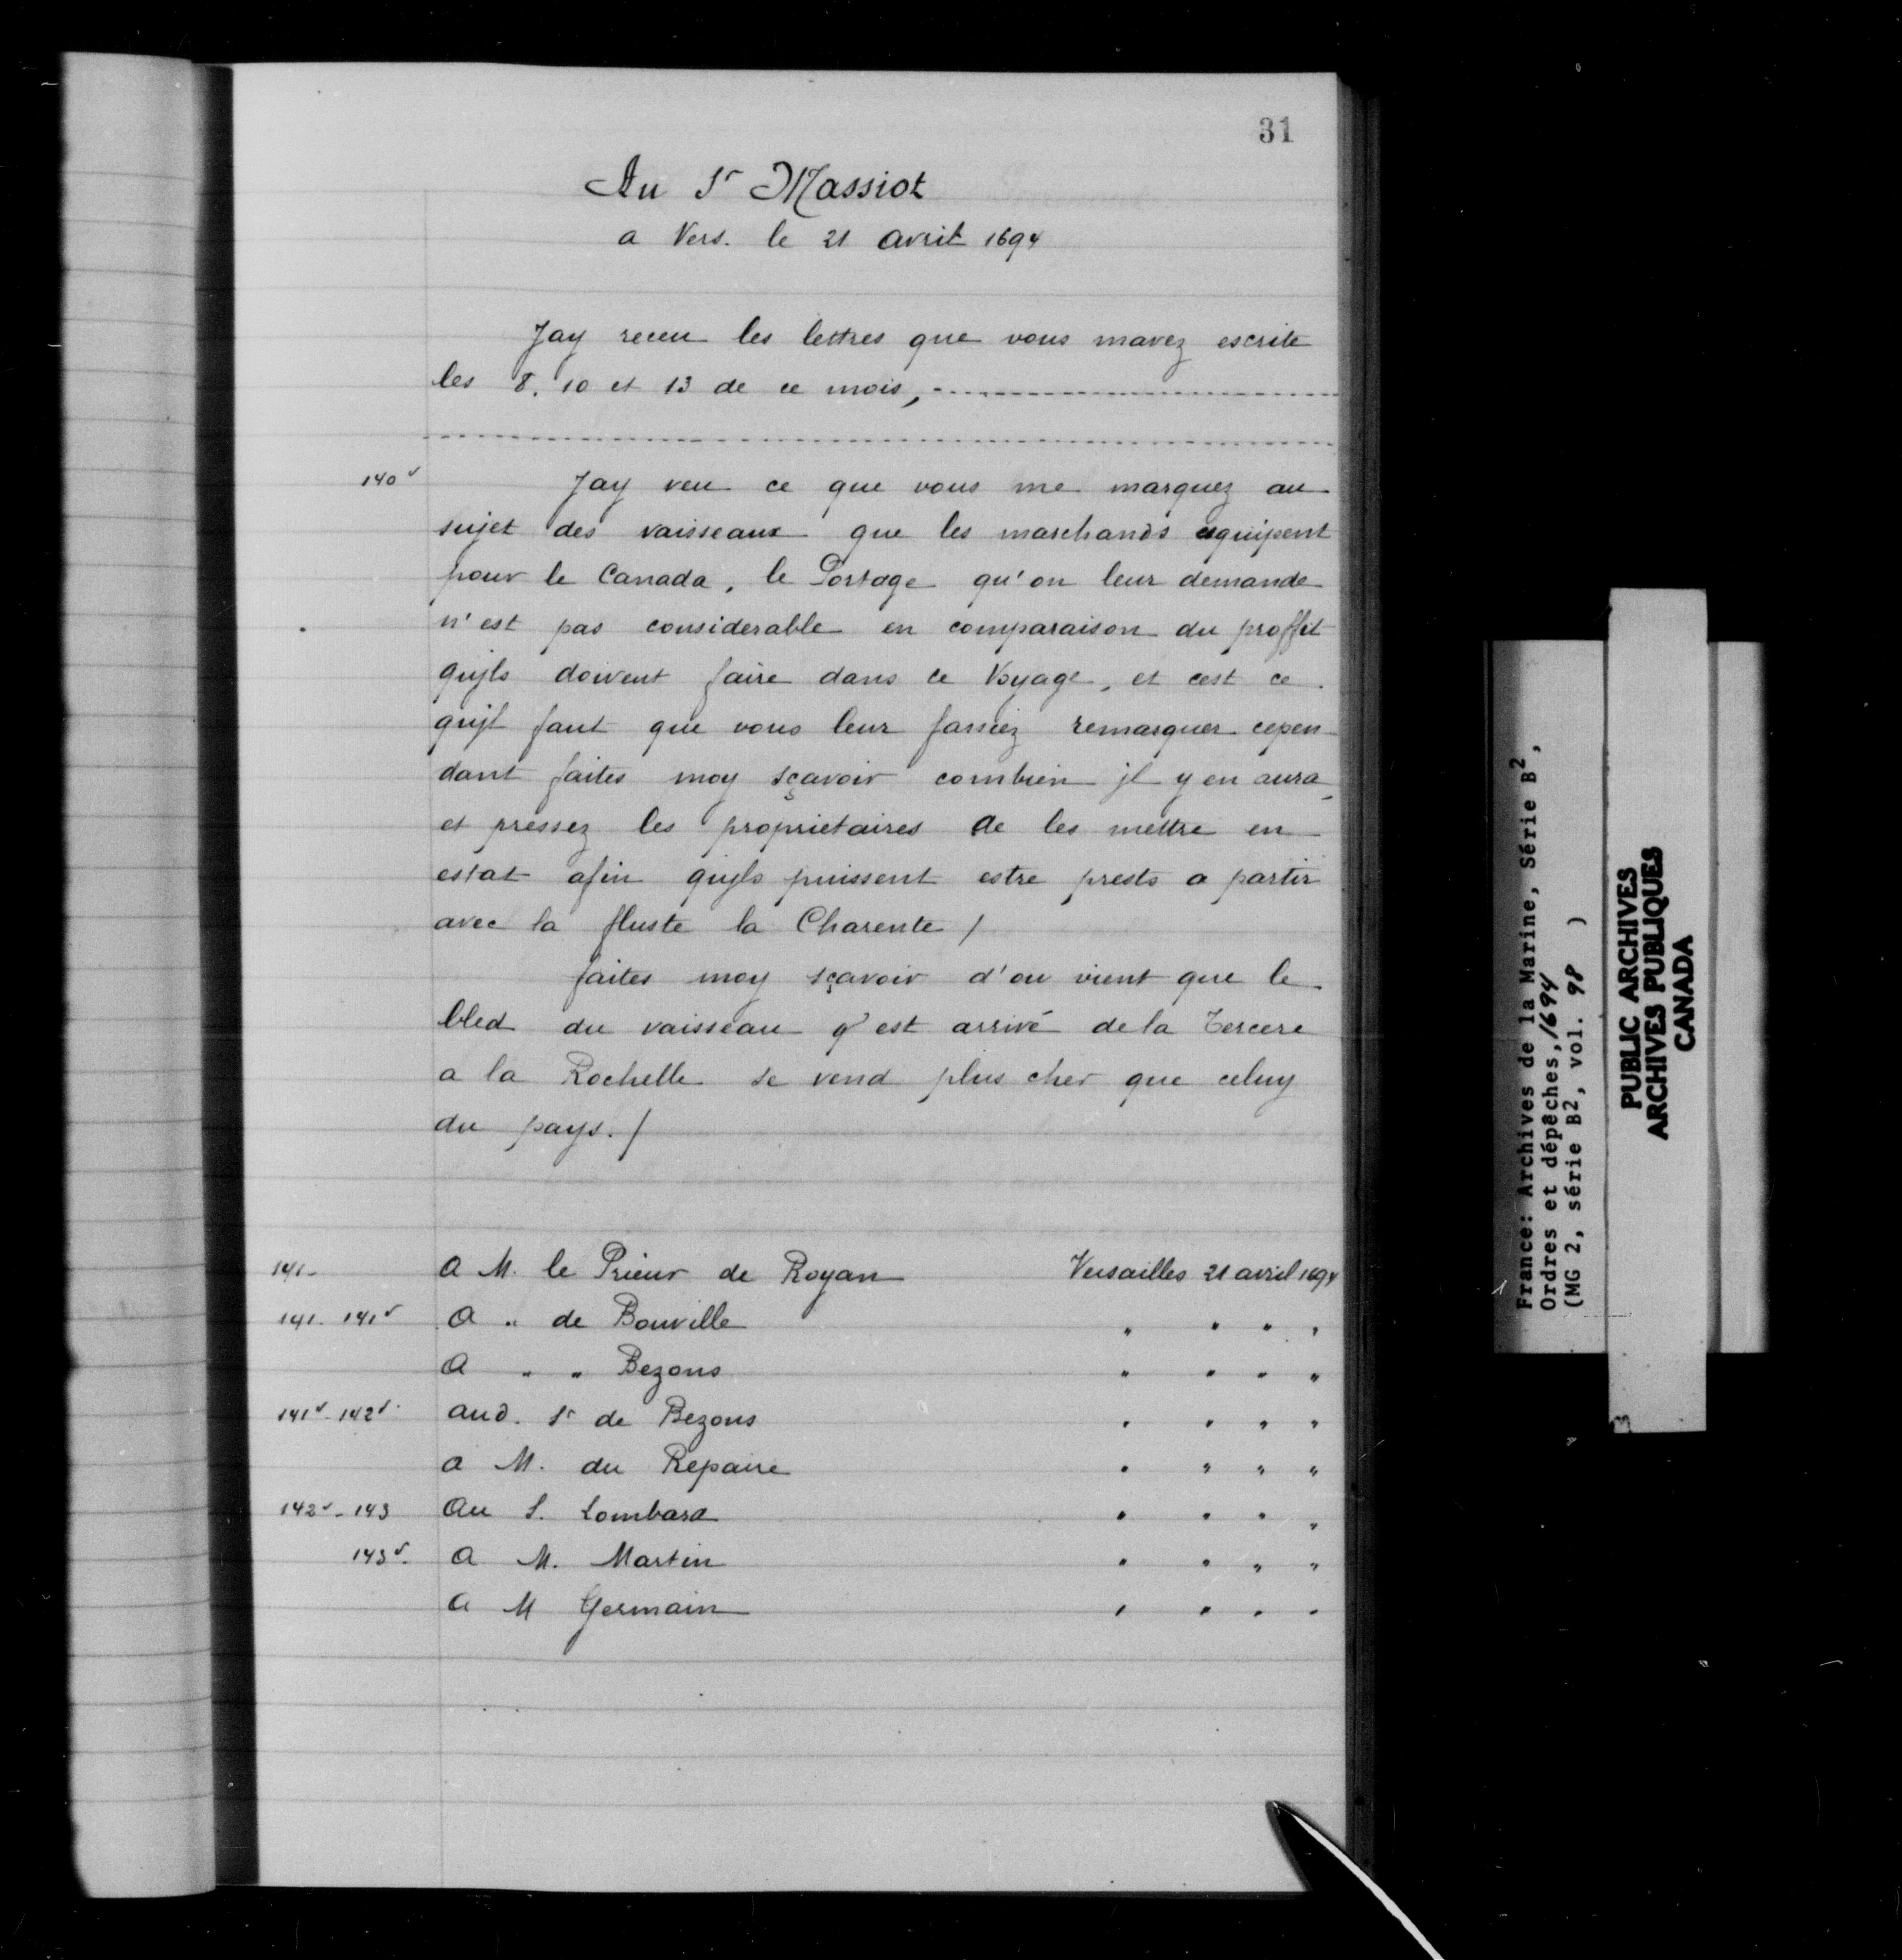 31
Au Sr Massiot
a Vers. le 21 avril 1694
Jay receu les lettres que vous mavez escrite
les 8. 10 et 13 de ce mois,
140v
Jay veu ce que vous me marquez au
sujet des vaisseaux que les marchands equipent
pour le Canada, le Portage qu'on leur demande
n'est pas considerable en comparaison du proffit
qujls doivent faire dans ce Voyage, et cest ce
qujl faut que vous leur fassiez remarquer cepen
dant faites moy sçavoir combien jl y en aura
et pressez les proprietaires de les mettre en
estat afin qujls puissent estre prests a partir
avec la fluste la Charente /
faites moy sçavoir d'ou vient que le
bled du vaisseau q' est arrivé de la Tercere
a la Rochelle se vend plus cher que celuy
du pays. /
141- a M. le Prieur de Royan Versailles 21 avril 1694
141- 141v a " de Bouville " " " "
a " " Bezons " " " "
141v-142v. aud. Sr de Bezons " " " "
a M. du Repaire " " " "
142v-143 au S. Lombard " " " "
143v. a M. Martin " " " "
a M Germain " " " "
France: Archives de la Marine, Série B2,
Ordres et dépêches, 1694
(MG 2, série B2, vol. 98 )
PUBLIC ARCHIVES
ARCHIVES PUBLIQUES
CANADA
3